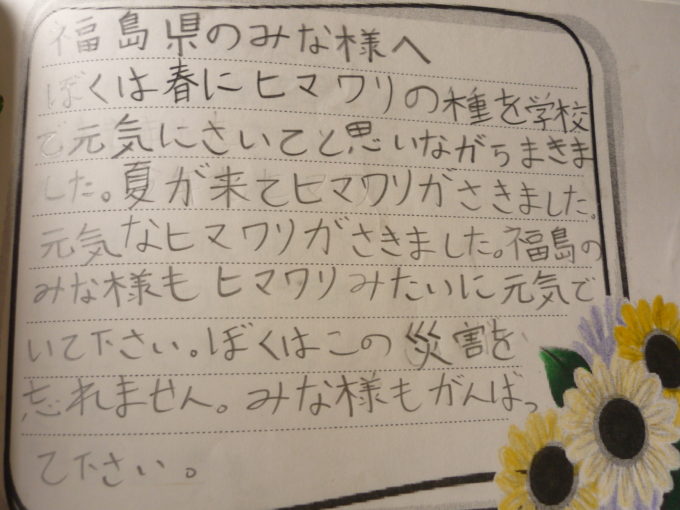 福島県のみな様へ
ぼくは春にヒマワリの種を学校
で元気にさいてと思いながらまきま
した。夏が来てヒマワリがさきました。
元気なヒマワリがさきました。福島の
みな様もヒマワリみたいに元気で
いて下さい。ぼくはこの災害を
忘れません。みな様もがんばっ
て下さい。